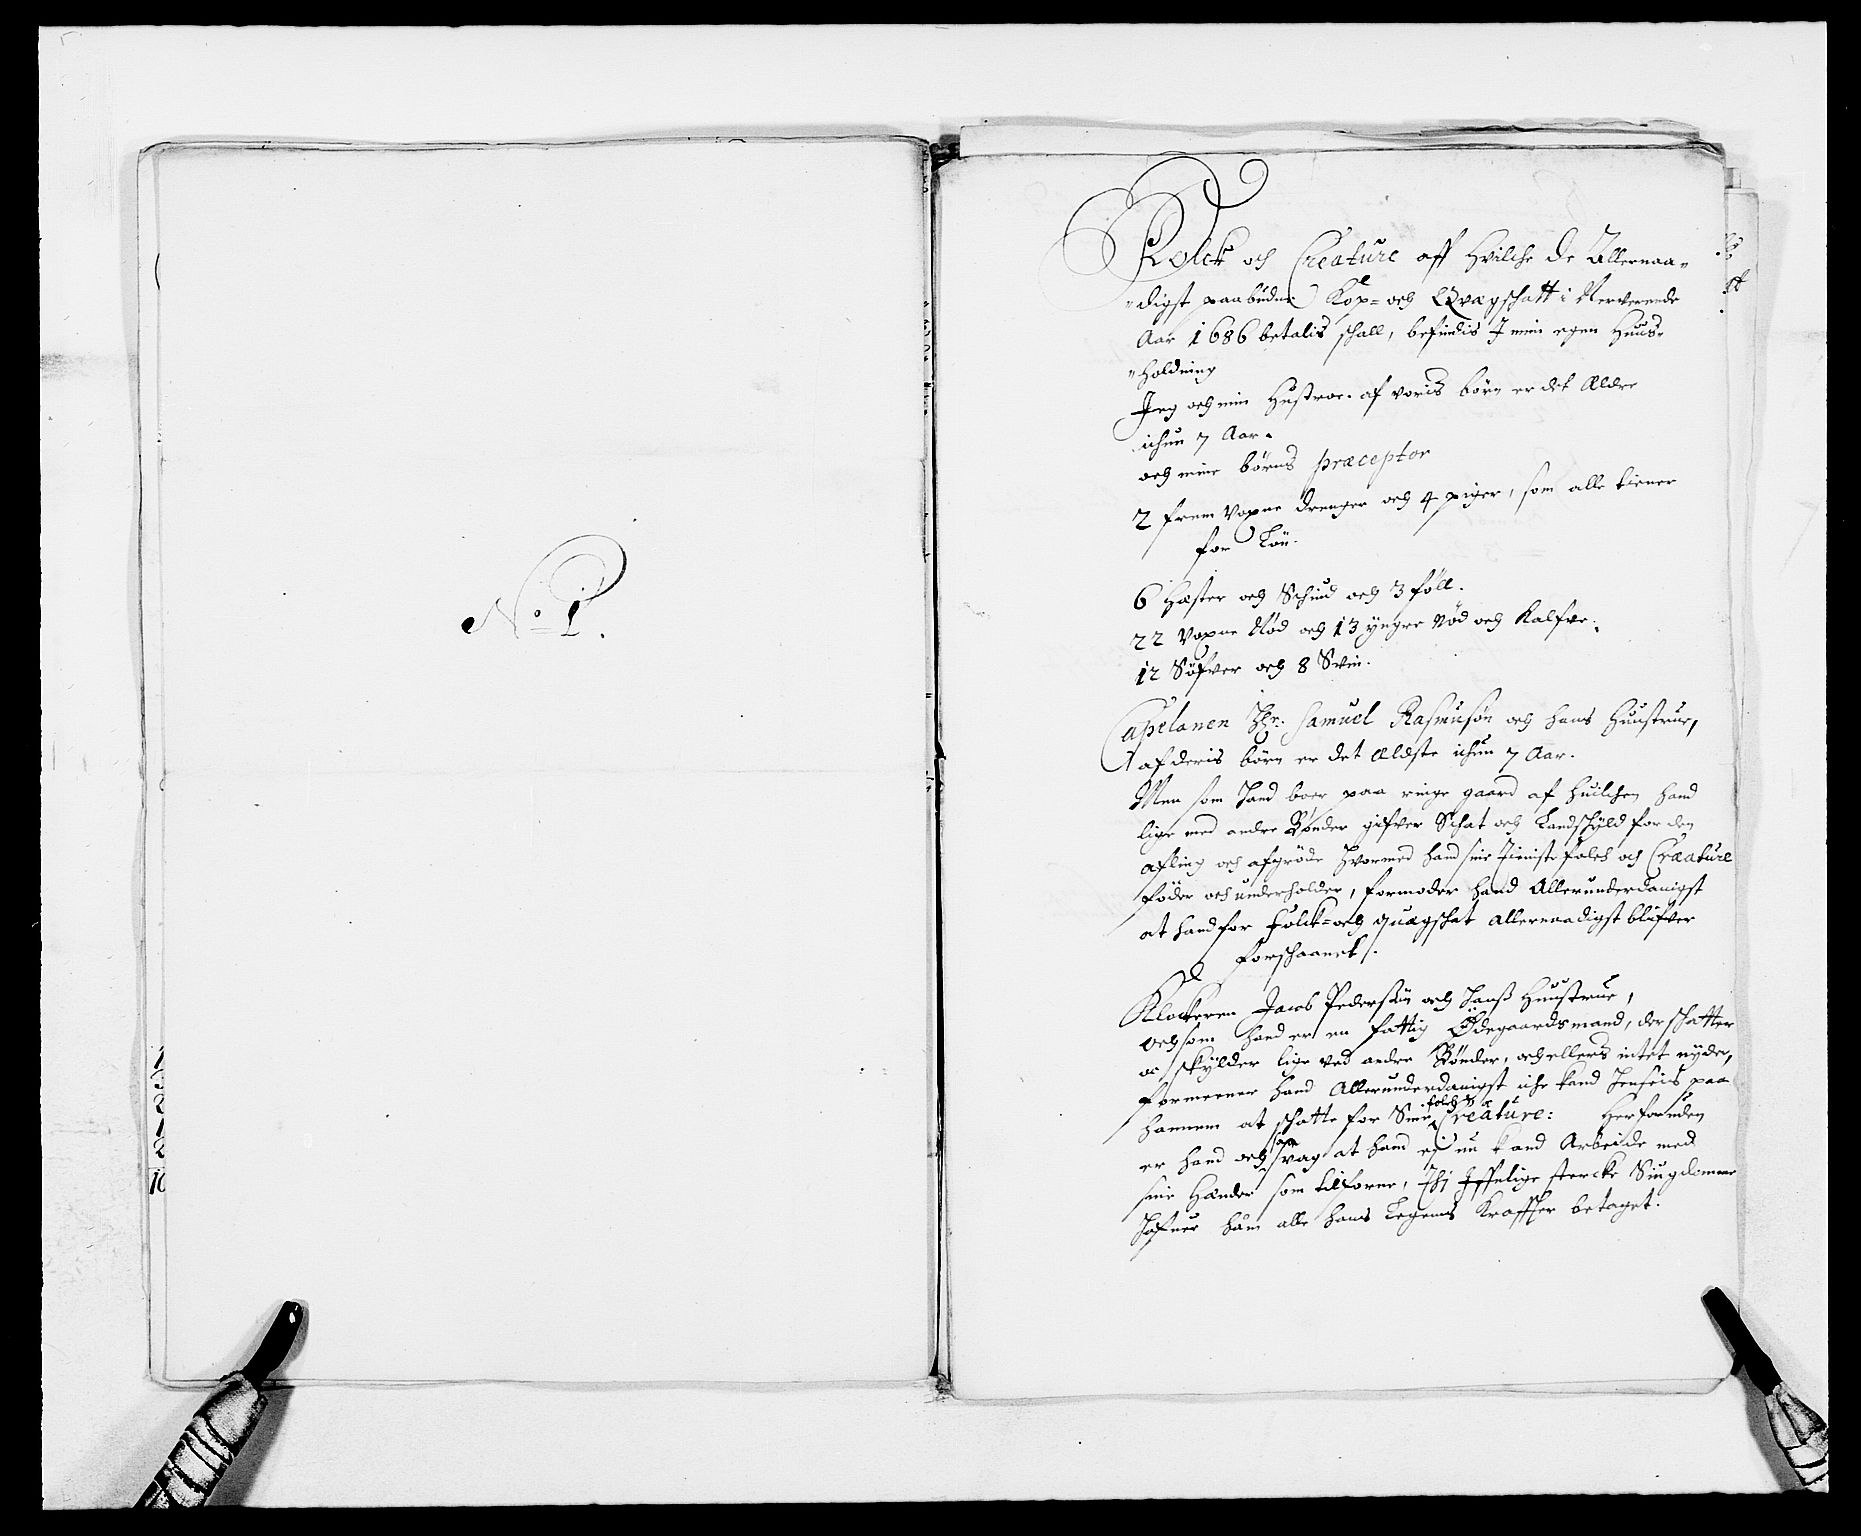 No 1.
Folck och Creature aff Hvilche de Allernaa-
digst paabudne Kop- och Qvægschatt i Nerverende
Aar 1686 betalis schall, befindis I min egen Huus-
holdning
Jeg och min Hustroe. af voris børn er det Ældre
ichun 7 Aar.
och mine børns præceptor
2 frem Voxne drenger och 4 piger, som alle tiener
for Løn.
6 Hæster och Schiud och 3 føll.
22 Voxne Nød och 13 yngre Nød och Kalfve.
12 Søfver och 8 Svin.
Capelanen Hr: Samuel Rasmusøn och hans Huustrue,
af deris børn er det Ældste ichun 7 Aar.
Men som Hand boer paa ringe gaard af huilchen hand
lige med andre Bønder gifver Schat och Landschyld for den
afling och afgrøde Hvormed hand sine Tieniste folch och Creature
føder och underholder, formoder hand Allerunderdanigst
at hand for Folck- och quægschat allernaadigst blifver
forschaanet.
Klockeren Jacob Pedersøn och Hanß Huustrue,
och som hand er en fattig Ødegaardsmand, der schatter
oc skylder lige ved andre Bønder, och ellers intet nyder,
formeener hand Allerunderdanigst iche kand henseis paa
hannem at schatte for Sine folch & Creature: Herforuden
er hand och saa svag at hand ej nu kand Arbeide med
sine Hænder som tilforne, Thj Idelige stercke Siugdomme
Hafuer ham alle hans Legems Kraffter betaget.